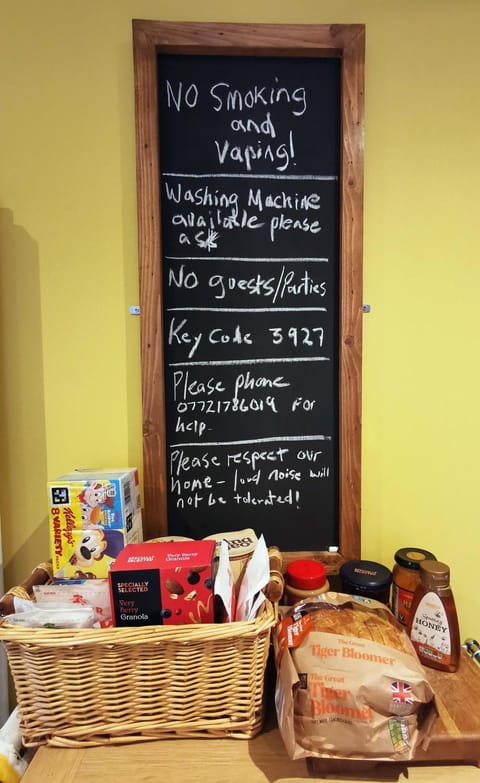 NO Smoking
and
Vaping!
Washing Machine
available please
ask
No guests/Parties
Key Code 3927
Please phone
07721786019 for
help.
Please respect our
home - loud noise will
not be tolerated!
Kellogg's
8 VARIETY
SPECIALLY
SELECTED
Very Berry
Granola
SPECIALLY
SELECTED
Very Berry
Granola
The Great
Tiger Bloomer
The Great
Tiger
Bloomer
HONEY